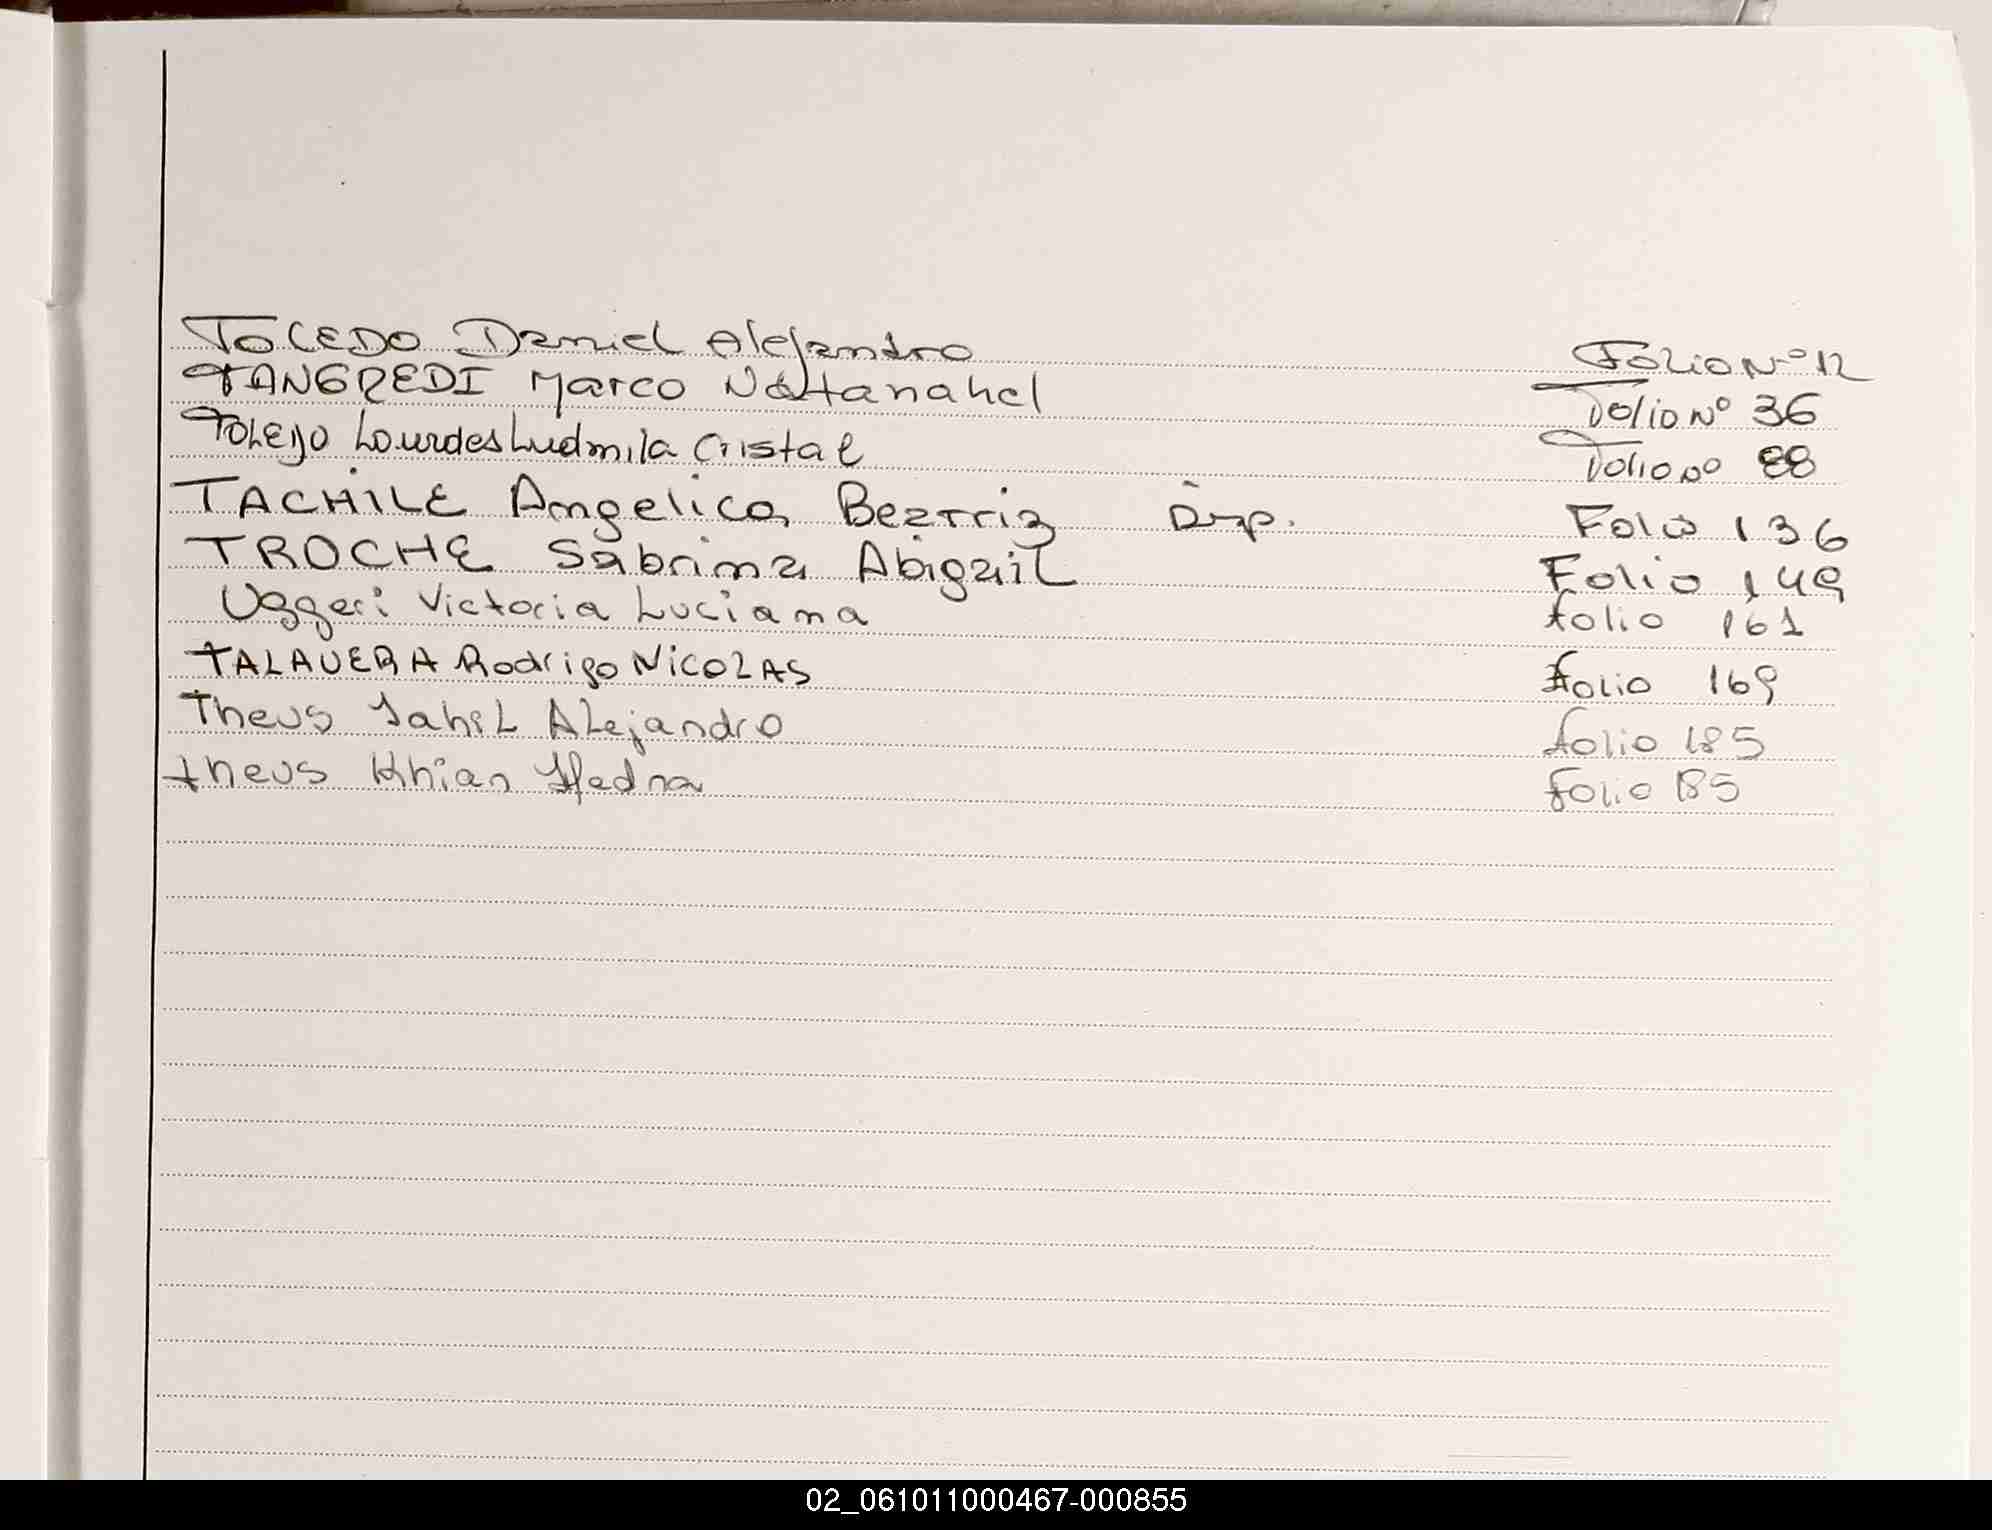 TOLEDO Daniel Alejandro Folio Nº 12
TANGREDI Marco Natanahel Folio Nº 36
TOLEDO Lourdes Ludmila Cristal Folio Nº 88
TACHILE Angelica Beatriz Dup. Folio 136
TROCHE Sabrina Abigail Folio 149
Uggeri Victoria Luciana folio 161
TALAVERA Rodrigo NicoLAS folio 169
Theus Jahil Alejandro folio 185
theus Khian folio 185
02_061011000467-000855